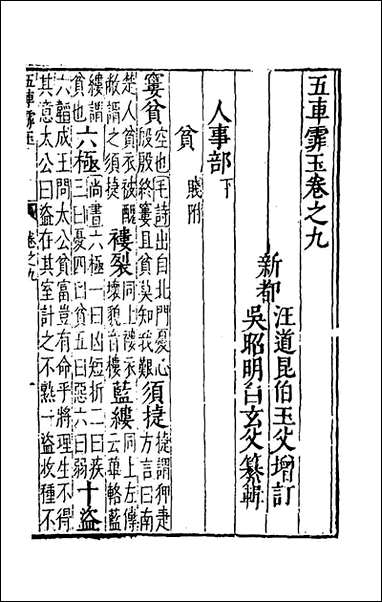 五車霏玉卷之九
新都
汪道昆伯玉父增訂
吳昭明自玄父纂輯
人事部下
貧 賤附
窶貧 空也毛詩出自北門憂心殷殷終窶且貧莫知我艱 須捷 捷謂狎疌方言曰南
楚人貧衣被醜敝謂之須捷 褸裂 同上褸衣壞貌音樓 藍縷 同上左傳云蓽輅藍
縷謂貧也 六極 尚書六極一曰凶短折二曰疾三曰憂四曰貧五曰惡六曰弱 十盜
六韜成王問太公貧富豈有命乎將理生不得其意太公曰盜在其室計之不熟一盜收種不
五車霏玉 卷之九 一